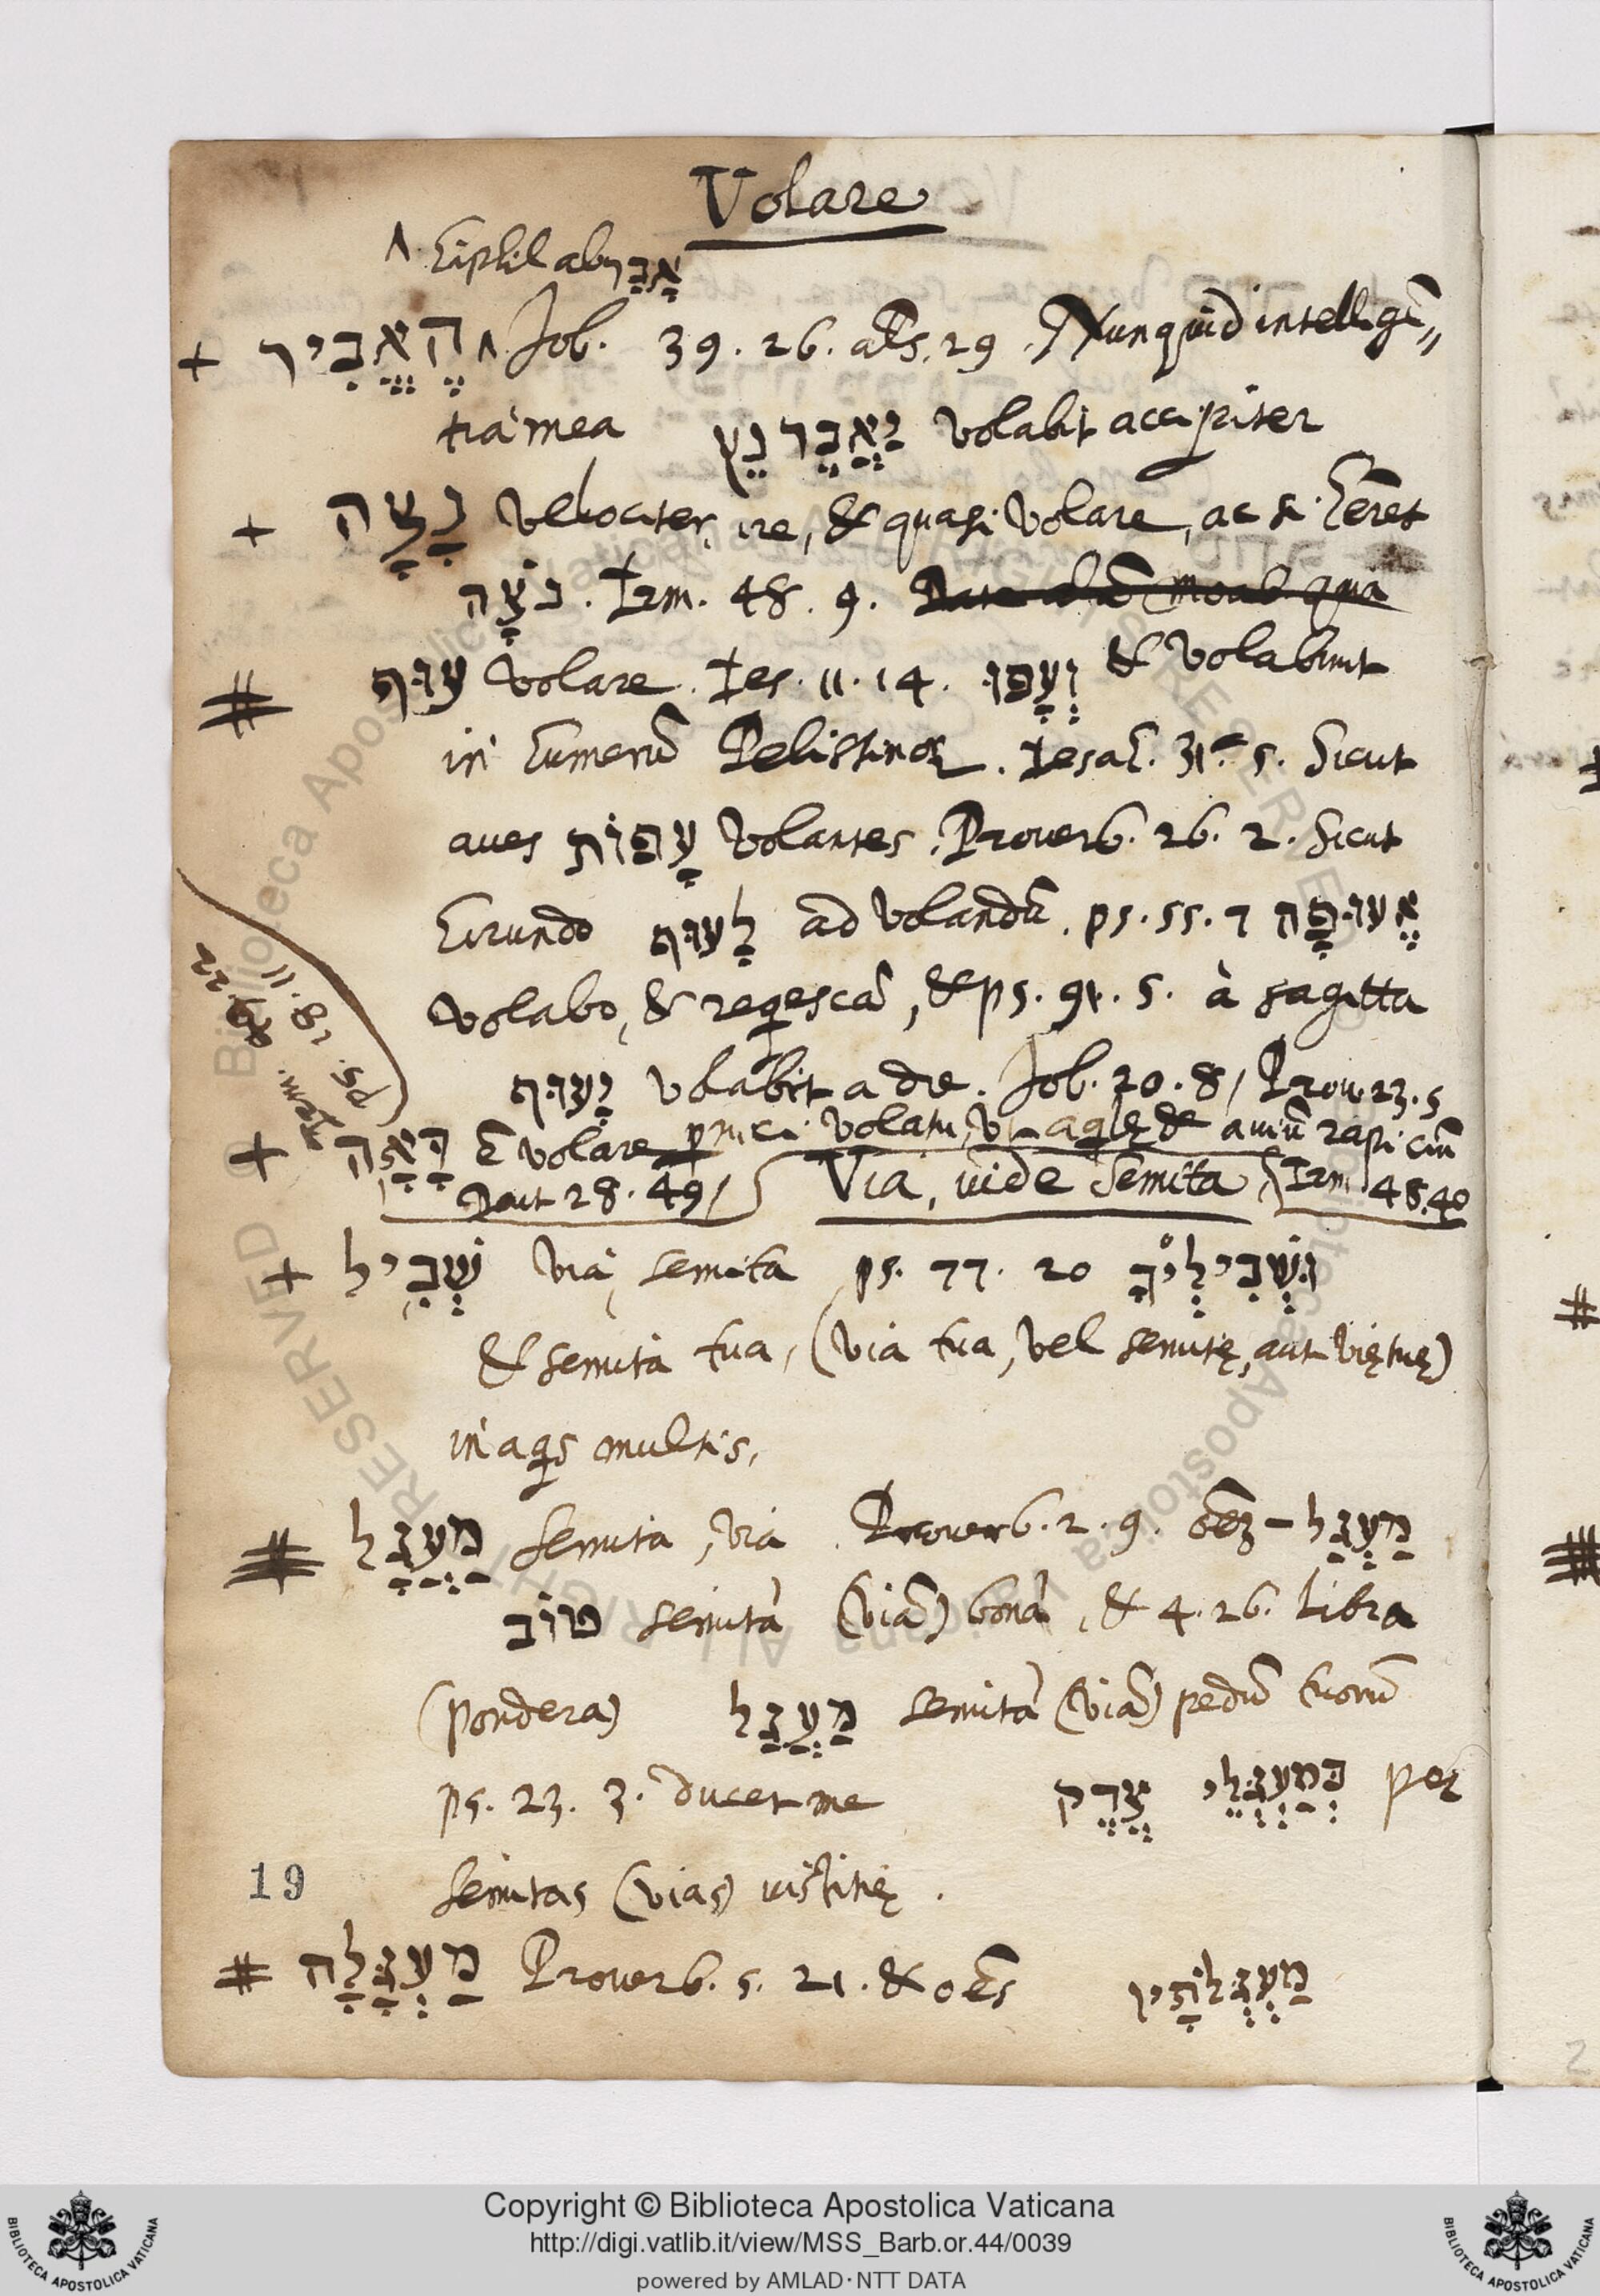 Volare
٨. Hiphil ab אָבַר
+ הֶאֱבִיר ٨. Job. 39. 26. als. 29. Nunquid intelligē„
tia mea יַאֲבֶר נֵץ volabit accipiter
+ נָצָה velociter ire, & quasi volare, ac si heret
נֹצָה. Irm. 48. 9. Date alā Moab quia
עוּף volare. Ies. 11. 14. וְעָפוּ & volabunt
in humerū Pelistinoꝝ. Iesah. 31. 5. Sicut
aues עָפוֹת volantes. Prouerb. 26. 2. Sicut
hirundo לָעוּף ad volandū. ps. 55. 7 אָעוּפָה
volabo, & reqescā, & ps. 91. 5. à sagitta
יָעוּף volabit a die. Job. 20. 8, Prou. 23. 5
ps. 18. 11
Irem. 49. 22
+ דָּאָה ē volare volatu, vt aqlę & auiū rapiciū
Deut 28. 49, Irm 48. 40
Via, vide Semita
+ שְׁבִיל via, semita ps. 77. 20 וּשְׁבִילְיךָ
& semita tua, (via tua, vel semitę, aut vię tuę)
in aqs multis,
מַעֲגָל semita, via. Prouerb. 2. 9. מַעְגַּל-
טוֹב semitā (viā) bonā, & 4. 26. Libra
(pondera) מַעֲגַל semitā (viā) pedū tuorū
ps. 23. 3. ducet me בְּמַעְגְּלֵי צֶדֶק per
semitas (vias) iustitię.
19
מַעְגָּלָה Prouerb. 5. 21. & oēs מַעְגְּלֹתָיו
Copyright © Biblioteca Apostolica Vaticana
http://digi.vatlib.it/view/MSS_Barb.or.44/0039
powered by AMLAD・NTT DATA
BIBLIOTECA APOSTOLICA VATICANA
BIBLIOTECA APOSTOLICA VATICANA